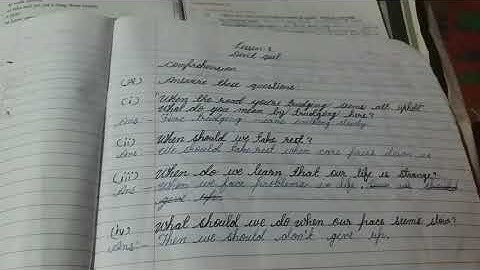 Lesson - 3
Don't quit
Comprehension
Answere these questions
(i) When the road you're trudging seems all uphill
What do you mean by trudging here?
Ans - Here trudging means walking
(ii) When should we take rest?
Ans - We should take rest when care press down us
(iii) When do we learn that our life is strange?
Ans - When we face problems in life,
give
(iv) What should we do when our pace seems slow?
Ans :- Then we should don't give up.